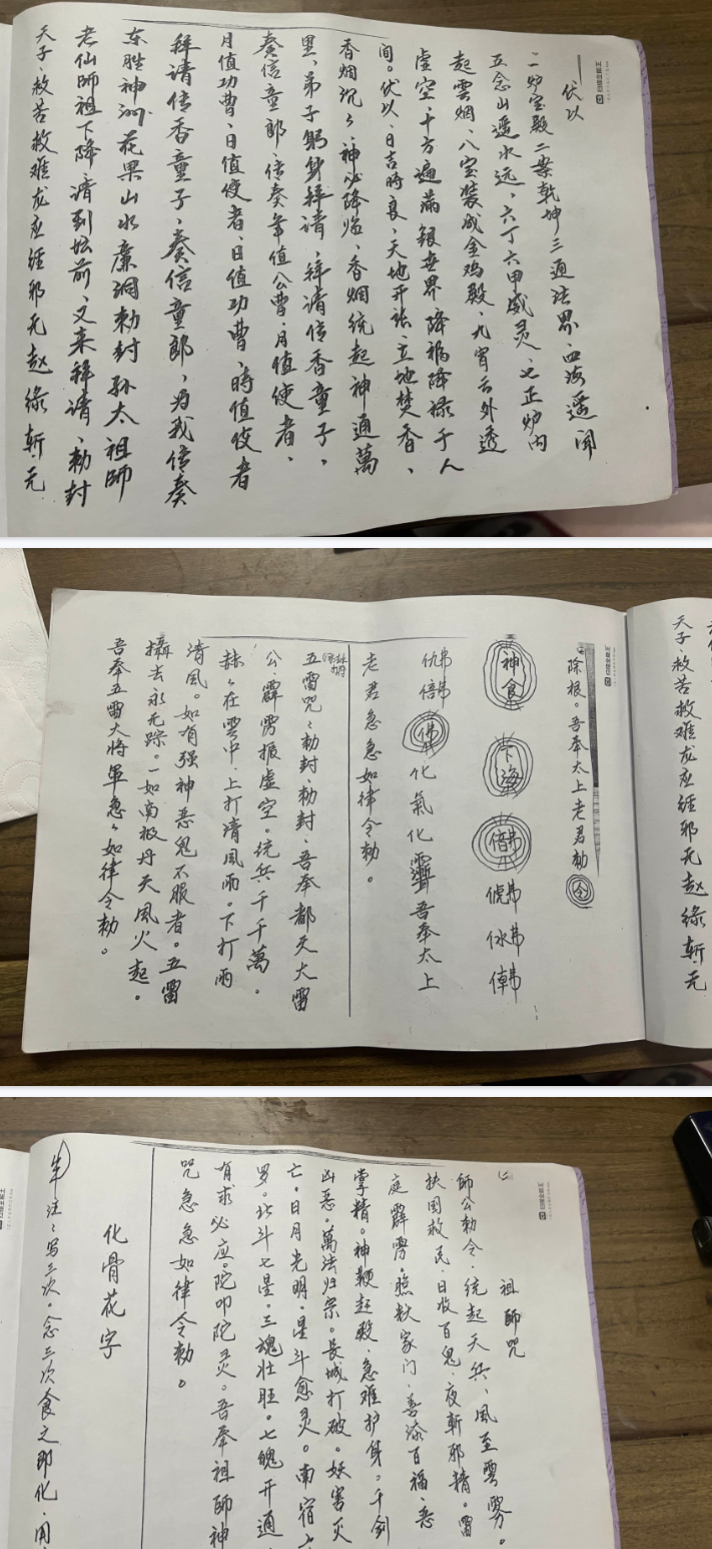 伏以
一炉宝殿二案乾坤三通法界、四海遥闻
五念山遥水远、六丁六甲威灵、七正炉内
起雲烟、八宝装成金鸡殿、九霄云外透
虚空、十方遍满銀世界降福降禄于人
间。伏以、日吉時良、天地开张、立地焚香、
香烟沉々、神必降临、香烟统起神通萬
里、弟子躬身拜請、拜請传香童子、
奏信童郎、传奏年值公曹、月值使者、
月值功曹、日值使者、日值功曹、時值使者
拜請传香童子、奏信童郎、为我传奏
东胜神洲、花果山水廉洞勅封孙太祖師
老仙師祖下降、請到坛前、又来拜請、勅封
天子、救苦救难龙应经邪无赵缘斩、元
除根。吾奉太上老君勅令
神食
下海
倍
化氣化 吾奉太上
老君急急如律令勅。
五雷咒、勅封、勅封、吾奉都天大雷
公、霹雳振虚空。统兵千千萬。
赫々在雲中、上打清風雨。下打雨
清風。如有强神恶鬼不服者。五雷
攝去永无踪。一如南极丹天風火起。
吾奉五雷大將軍急々如律令勅。
祖師咒
師公勅令、统起天兵、風至雲雾。
扶国救民、日收百鬼、夜斬邪精。雷
庭霹雳。照耿家门、善添百福、恶
掌精。神鞭赶殺、急难护身。千剑
凶恶。萬法归宗。長城打破。妖害灭
亡。日月光明、星斗愈灵。南宿
罗。北斗七星。三魂壮旺。七魄开通
有求必应。陀叩陀灵。吾奉祖師神
咒急急如律令勅。
化骨花字
注：写三次。念三次食之即化、用